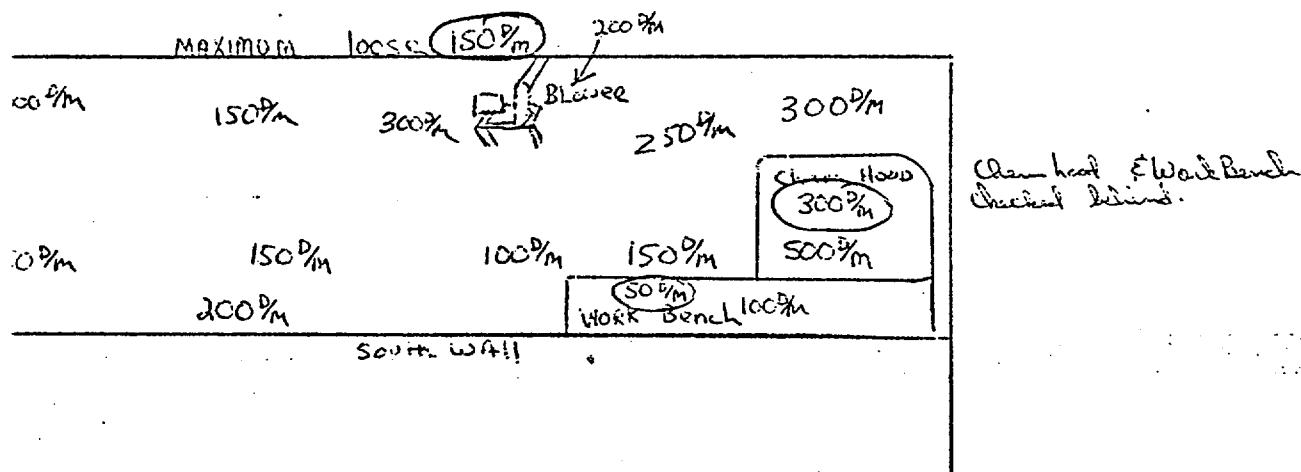 200 D/m
MAXIMUM loose 150 D/m
00 D/m 150 D/m 300 D/m Blower 250 D/m 300 D/m
Chem Hood
300 D/m
0 D/m 150 D/m 100 D/m 150 D/m 500 D/m
200 D/m 50 D/m
Work Bench 100 D/m
South Wall
Chem hood & Work Bench
Checked behind.